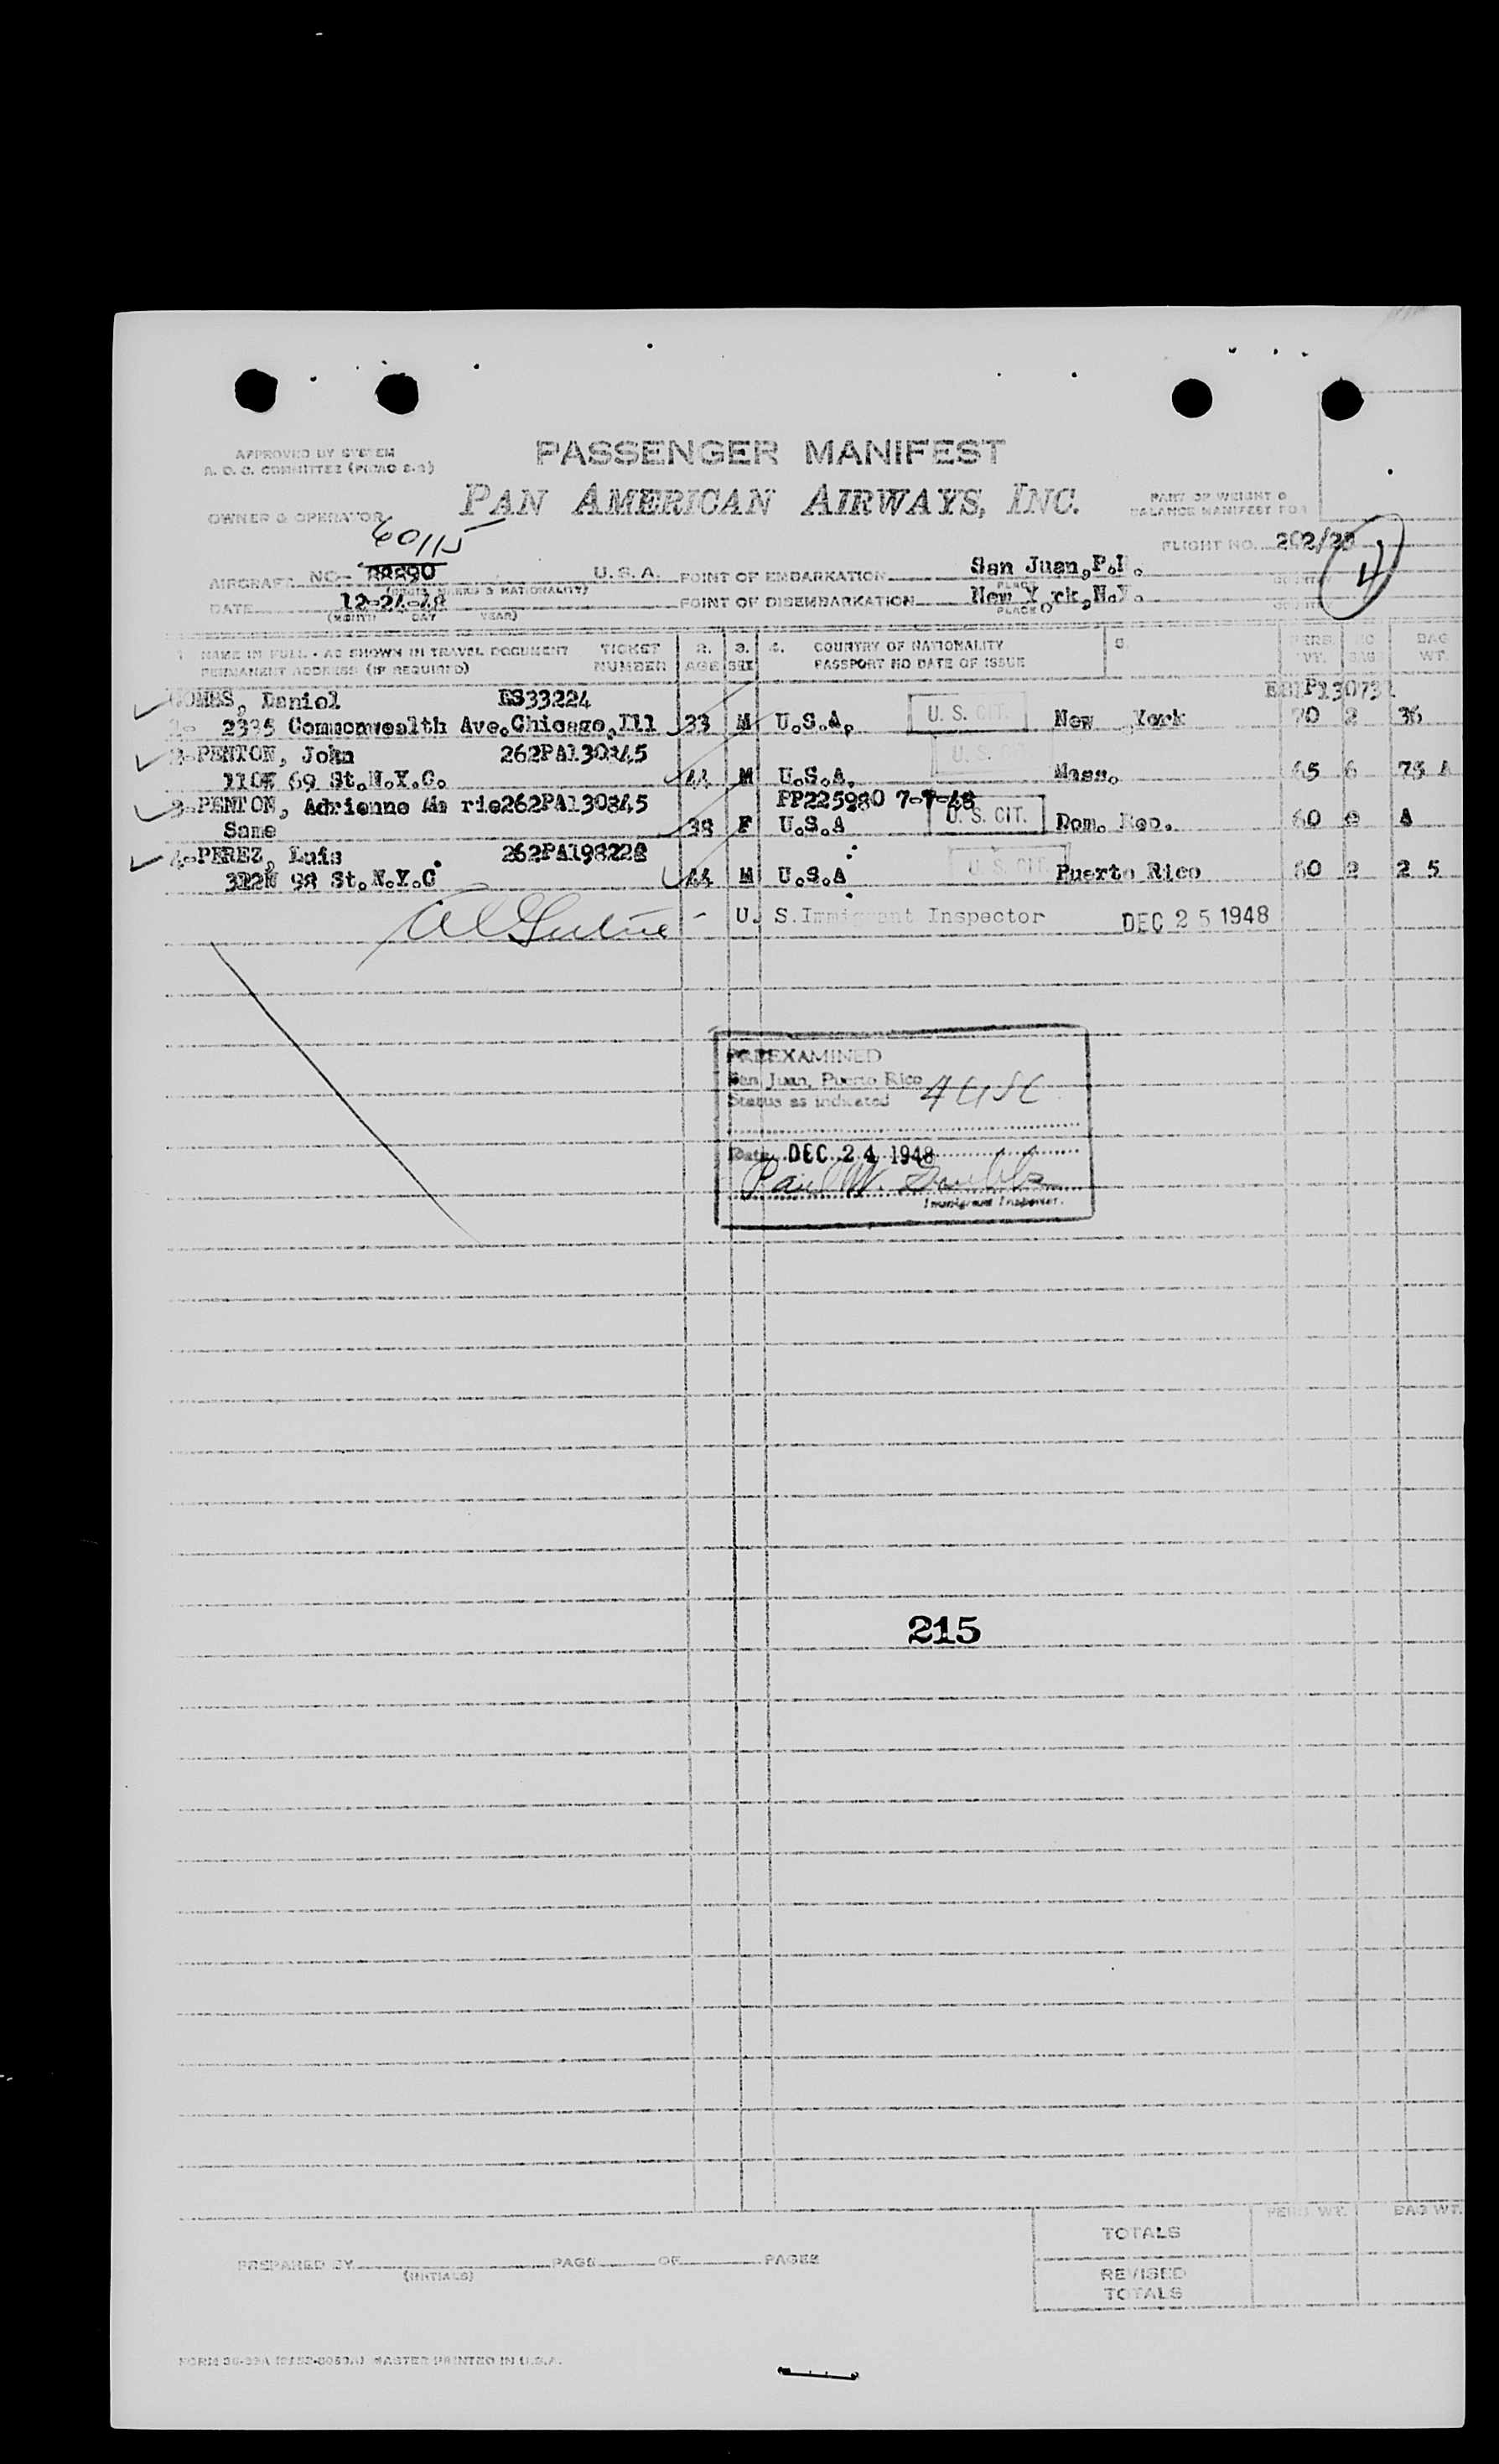 PASSENGER MANIFEST
APPROVED BY SYSTEM
A. O. C. COMMITTEE
PAN AMERICAN AIRWAYS, INC.
PART OF WEIGHT &
BALANCE MANIFEST FOR
OWNER & OPERATOR
60115
FLIGHT NO. 202/
4
AIRCRAFT NO. U. S. A. POINT OF EMBARKATION San Juan,P.R.
PLACE COUNTRY
DATE 12-24-48 POINT OF DISEMBARKATION New Y ork,N.Y.
(MONTH DAY YEAR) PLACE COUNTRY
1 NAME IN FULL - AS SHOWN IN TRAVEL DOCUMENT TICKET 2. 3. 4. COUNTRY OF NATIONALITY 5. PERS. NO BAG
PERMANENT ADDRESS (IF REQUIRED) NUMBER AGE SEX PASSPORT NO DATE OF ISSUE WT. BAG WT.
Daniel 33224
2335 Commonwealth Ave.Chicago,Ill 33 M U.S.A. U. S. CIT. New York 70 2 36
PENTON, John 262PA130845
69 St.N.Y.C. 44 M U.S.A. U. S. CIT. Mass. 65 6 A
3-PENTON, Adrienne Ma rie262PA130845 PP225980 7-7-48
Same 38 F U.S.A U. S. CIT. Dom. Rep. 60 A
4-PEREZ, Luis 262PA198228
98 St.N.Y.C 44 M U.S.A U. S. CIT. Puerto Rico 60 2 2 5
U. S. Immigrant Inspector DEC 25 1948
PREEXAMINED
San Juan, Puerto Rico
Status as indicated 4 USC
Date DEC 24 1948
Paul W.
Immigrant Inspector.
215
PERS WT. BAG WT.
TOTALS
PREPARED BY PAGE OF PAGES
(INITIALS)
REVISED
TOTALS
MASTER PRINTED IN U.S.A.